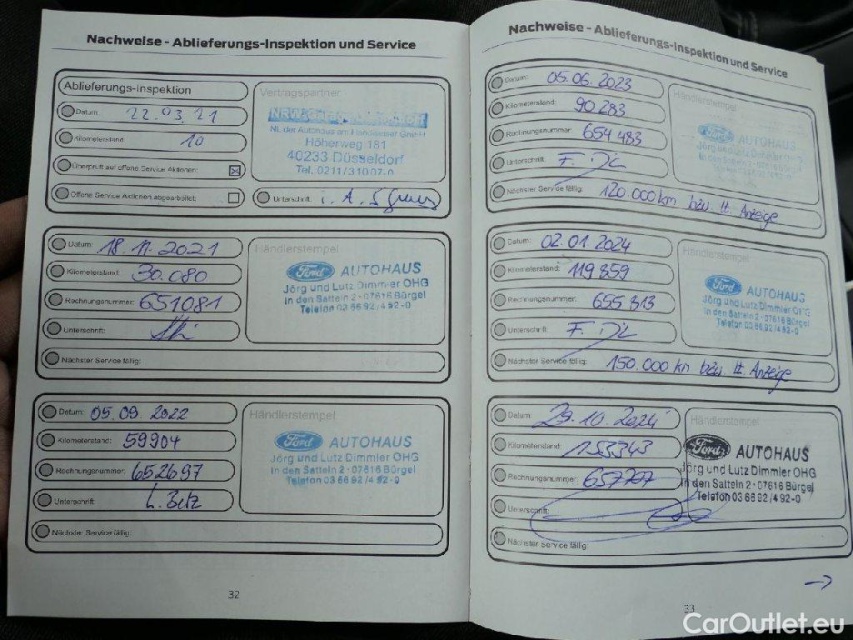 Nachweise - Ablieferungs-Inspektion und Service
Ablieferungs-Inspektion
Datum: 22.03.21
Kilometerstand: 10
Überprüft auf offene Service Aktionen:
Offene Service Aktionen abgearbeitet:
Vertragspartner
Höherweg 181
40233 Düsseldorf
Tel. 0211/
Unterschrift: i.A.
Datum: 18.11.2021
Kilometerstand: 30.080
Rechnungsnummer: 651081
Unterschrift:
Nächster Service fällig:
Händlerstempel
Ford AUTOHAUS
Jörg und Lutz Dimmler OHG
in den Satteln 2 - 07616 Bürgel
Telefon 03 66 92 / 4 92-0
Datum: 05.09.2022
Kilometerstand: 59904
Rechnungsnummer: 652697
Unterschrift: L. Betz
Nächster Service fällig:
Händlerstempel
Ford AUTOHAUS
Jörg und Lutz Dimmler OHG
in den Satteln 2 - 07616 Bürgel
Telefon 03 66 92 / 4 92-0
32
Nachweise - Ablieferungs-Inspektion und Service
Datum: 05.06.2023
Kilometerstand: 90 283
Rechnungsnummer: 654 483
Unterschrift:
Nächster Service fällig: 120.000km bzw. lt. Anzeige
Händlerstempel
Ford AUTOHAUS
Jörg und Lutz Dimmler OHG
Datum: 02.01 2024
Kilometerstand: 119 859
Rechnungsnummer: 655 813
Unterschrift:
Nächster Service fällig: 150.000 km bzw. lt. Anzeige
Händlerstempel
Ford AUTOHAUS
Jörg und Lutz Dimmler OHG
in den Satteln 2 - 07616 Bürgel
Telefon 03 66 92 / 4 92-0
Datum: 29.10.2024
Kilometerstand: 153343
Rechnungsnummer:
Unterschrift:
Nächster Service fällig:
Händlerstempel
Ford AUTOHAUS
Jörg und Lutz Dimmler OHG
in den Satteln 2 - 07616 Bürgel
Telefon 03 66 92 / 4 92-0
33
CarOutlet.eu